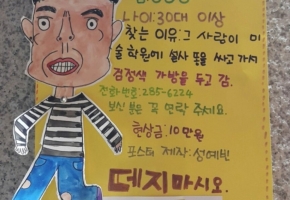 나이:30대 이상
찾는 이유:그 사람이 미
술학원에 설사 똥을 싸고 가서
검정색 가방을 두고 감.
전화번호:285-6224
보신 분은 꼭 연락 주세요.
현상금:10만원
포스터 제작:성예빈
떼지마시오.